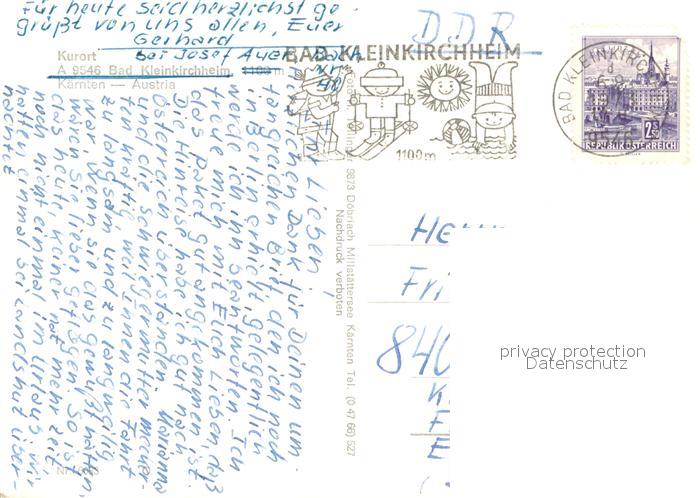 Für heute seid herzlichst ge-
grüßt von uns allen, Euer
Gerhard
bei Josef Auer
Kurort
A 9546 Bad Kleinkirchheim, 1100 m
Kärnten — Austria
BAD KLEINKIRCHHEIM
1100 m
BAD KLEINKIRCH
2.50
REPUBLIK ÖSTERREICH
DDR
Lieben!
Dank für Deinen um-
fangreichen Brief, den ich noch
Berlin erhielt, gelegentlich
werde ich ihn beantworten. Ich
freue mich mit Euch Lieben, daß
das Paket gut angekommen ist.
Die Hinreise habe ich gut nach
Österreich überstanden. Marianne
und die Schwiegermutter
zu langsam und zu langweilig
war. Wenn sie das gewußt hätten,
wären sie lieber geflogen. So ist
das heute, keiner hat mehr Zeit,
noch nicht einmal im Urlaub. Wir
hatten einmal bei Landshut über-
nachtet.
9873 Döbriach Millstättersee Kärnten Tel. (0 47 66) 527
Nachdruck verboten
He
Fri
840
K
F
E
privacy protection
Datenschutz